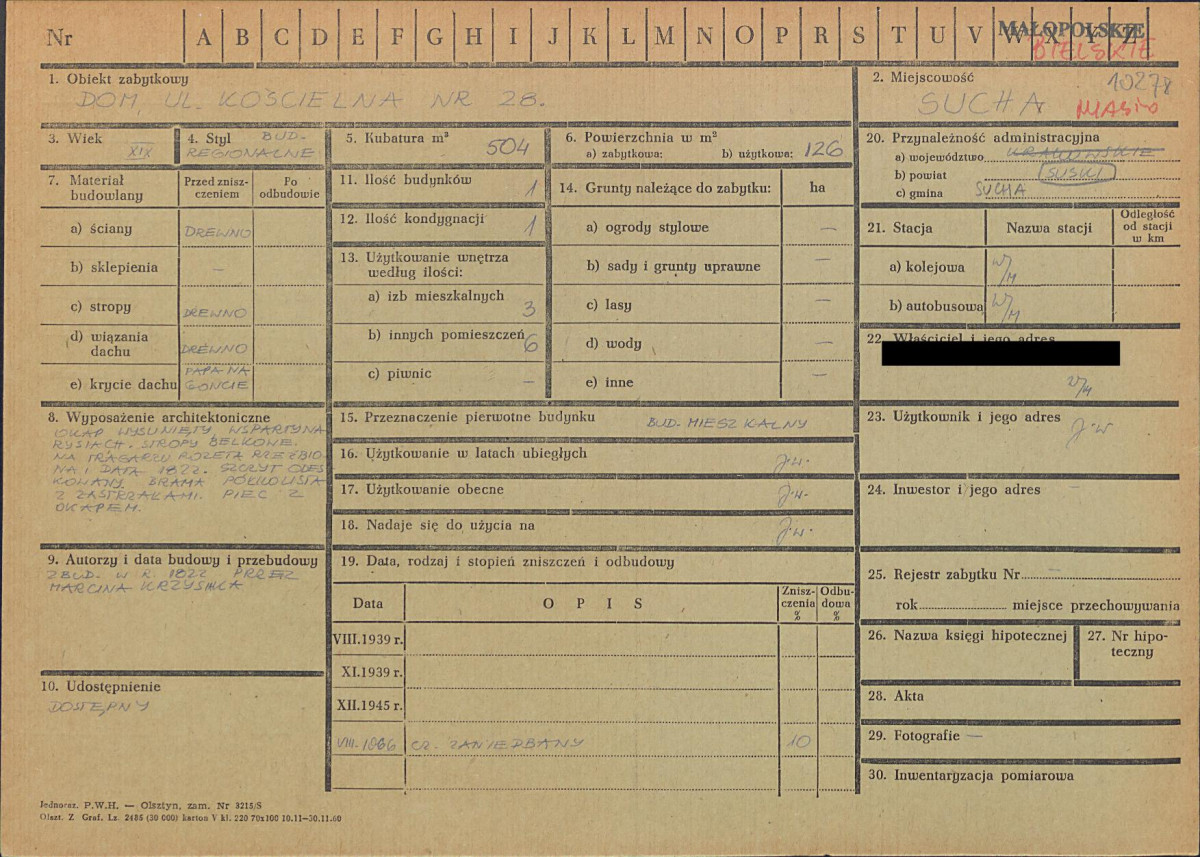 Nr A B C D E F G H I J K L M N O P R S T U V W X Y Z
MAŁOPOLSKIE
BIELSKIE
1. Obiekt zabytkowy
DOM, UL. KOŚCIELNA NR 28.
2. Miejscowość
10278
SUCHA
MIASTO
3. Wiek
XIX
4. Styl BUD.
REGIONALNE
5. Kubatura m³
504
6. Powierzchnia w m²
a) zabytkowa: b) użytkowa: 126
7. Materiał budowlany
Przed zniszczeniem
Po odbudowie
a) ściany DREWNO
b) sklepienia —
c) stropy DREWNO
d) wiązania dachu DREWNO
e) krycie dachu PAPA NA GONCIE
8. Wyposażenie architektoniczne
OKAP WYSUNIĘTY, WSPARTY NA
RYSIACH. STROPY BELKOWE.
NA TRAGARZU ROZETA RZEŹBIO
NA I DATA 1822. SZCZYT ODES
KOWANY. BRAMA PÓŁKOLISTA
Z ZASTRZAŁAMI. PIEC Z
OKAPEM.
9. Autorzy i data budowy i przebudowy
ZBUD. W R. 1822 PRZEZ
MARCINA
10. Udostępnienie
DOSTĘPNY
11. Ilość budynków 1
12. Ilość kondygnacji 1
13. Użytkowanie wnętrza
według ilości:
a) izb mieszkalnych 3
b) innych pomieszczeń 6
c) piwnic —
14. Grunty należące do zabytku: ha
a) ogrody stylowe —
b) sady i grunty uprawne —
c) lasy —
d) wody —
e) inne —
15. Przeznaczenie pierwotne budynku BUD. MIESZKALNY
16. Użytkowanie w latach ubiegłych J.w.
17. Użytkowanie obecne J.w.
18. Nadaje się do użycia na J.w.
19. Data, rodzaj i stopień zniszczeń i odbudowy
Data OPIS Zniszczenia % Odbudowa %
VIII.1939 r.
XI.1939 r.
XII.1945 r.
VIII.1966 CZ. ZANIEDBANY 10
20. Przynależność administracyjna
a) województwo KRAKOWSKIE
b) powiat SUSKI
c) gmina SUCHA
21. Stacja Nazwa stacji Odległość od stacji w km
a) kolejowa W/M
b) autobusowa W/M
22. Właściciel i jego adres
W/M
23. Użytkownik i jego adres
J.w
24. Inwestor i jego adres
25. Rejestr zabytku Nr —
rok miejsce przechowywania
26. Nazwa księgi hipotecznej
27. Nr hipoteczny
28. Akta
29. Fotografie —
30. Inwentaryzacja pomiarowa
Jednocz. P.W.H. — Olsztyn, zam. Nr 3215/S
Olszt. Z Graf. Lz. 2486 (30 000) karton V kl. 220 70x100 10.11—30.11.60